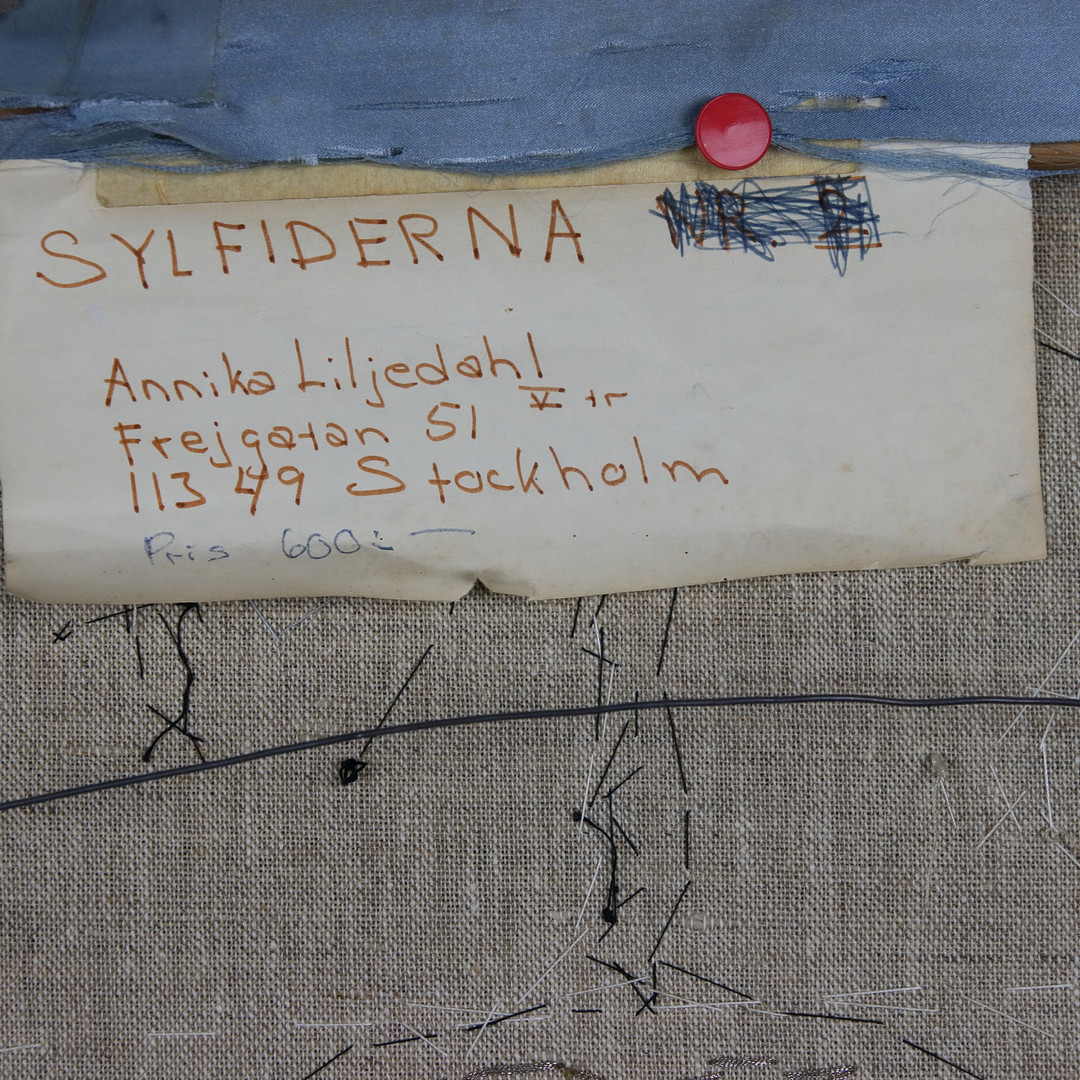 SYLFIDERNA NR. 2.
Annika Liljedahl
Frejgatan 51 V tr
113 49 Stockholm
Pris 600:-